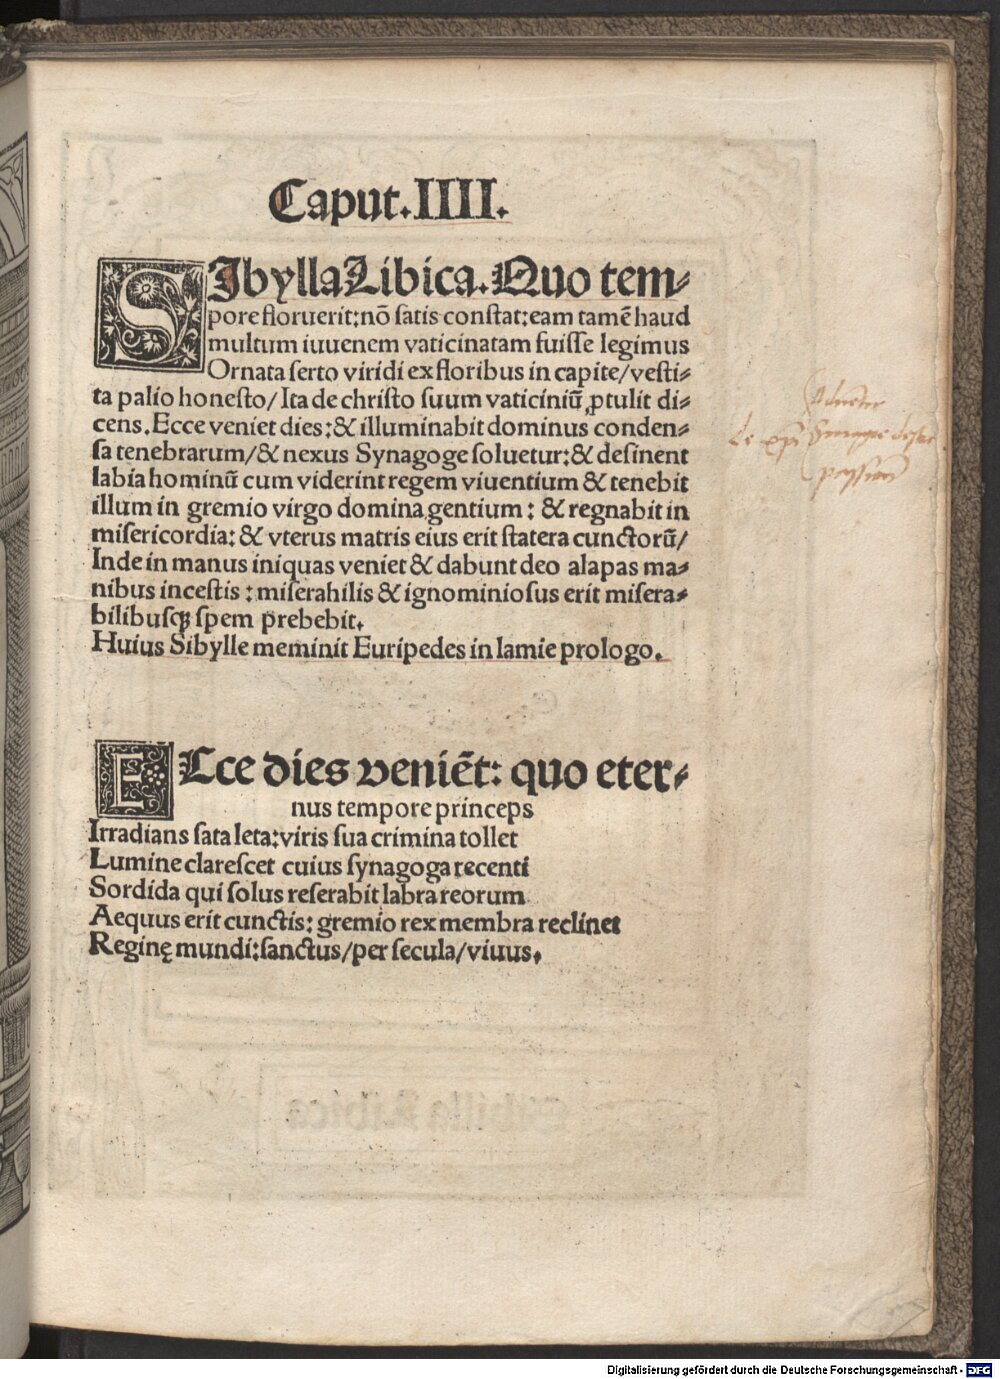 Caput.IIII.
SIbylla Libica. Quo tem⸗
pore floruerit: nō satis constat: eam tamē haud
multum iuuenem vaticinatam fuisse legimus
Ornata serto viridi ex floribus in capite/ vesti⸗
ta palio honesto/ Ita de christo suum vaticiniū ꝓtulit di⸗
cens. Ecce veniet dies: & illuminabit dominus conden⸗
sa tenebrarum/ & nexus Synagoge soluetur: & desinent
labia hominū cum viderint regem viuentium & tenebit
illum in gremio virgo domina gentium: & regnabit in
misericordia: & vterus matris eius erit statera cunctorū/
Inde in manus iniquas veniet & dabunt deo alapas ma⸗
nibus incestis: miserahilis & ignominiosus erit misera⸗
bilibusqꝫ spem prebebit.
Huius Sibylle meminit Euripedes in lamie prologo.
ECce dies veniēt: quo eter⸗
nus tempore princeps
Irradians sata leta: viris sua crimina tollet
Lumine clarescet cuius synagoga recenti
Sordida qui solus reserabit labra reorum
Aequus erit cunctis: gremio rex membra reclinet
Reginę mundi: sanctus/ per secula/ viuus.
Digitalisierung gefördert durch die Deutsche Forschungsgemeinschaft - DFG